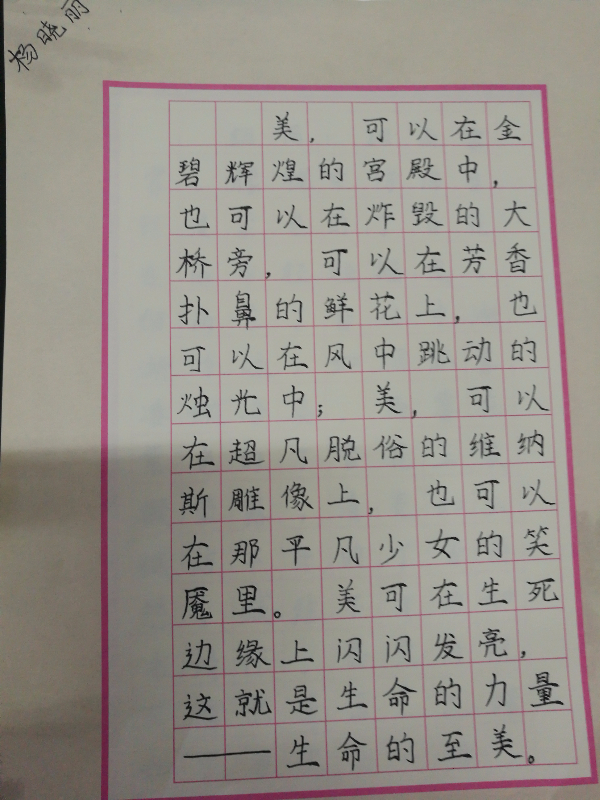 杨晓丽
美，可以在金
碧辉煌的宫殿中，
也可以在炸毁的大
桥旁，可以在芳香
扑鼻的鲜花上，也
可以在风中跳动的
烛光中；美，可以
在超凡脱俗的维纳
斯雕像上，也可以
在那平凡少女的笑
魇里。美可在生死
边缘上闪闪发亮，
这就是生命的力量
——生命的至美。